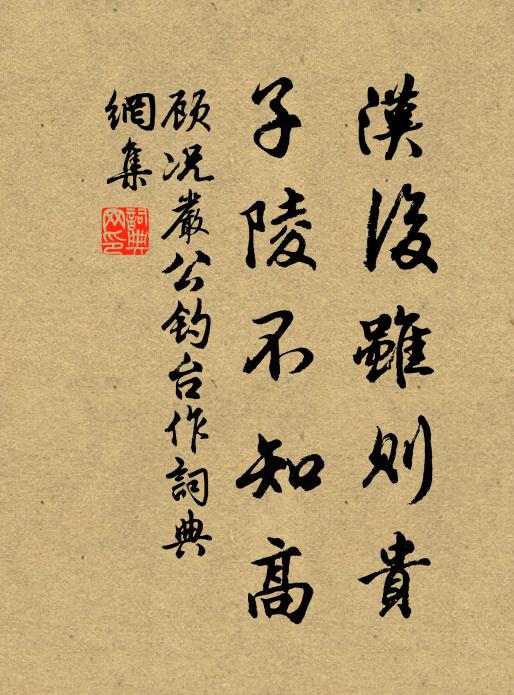 漢後雖則貴
子陵不知高
顧况嚴公釣台作詞典
網集
詞典
网印